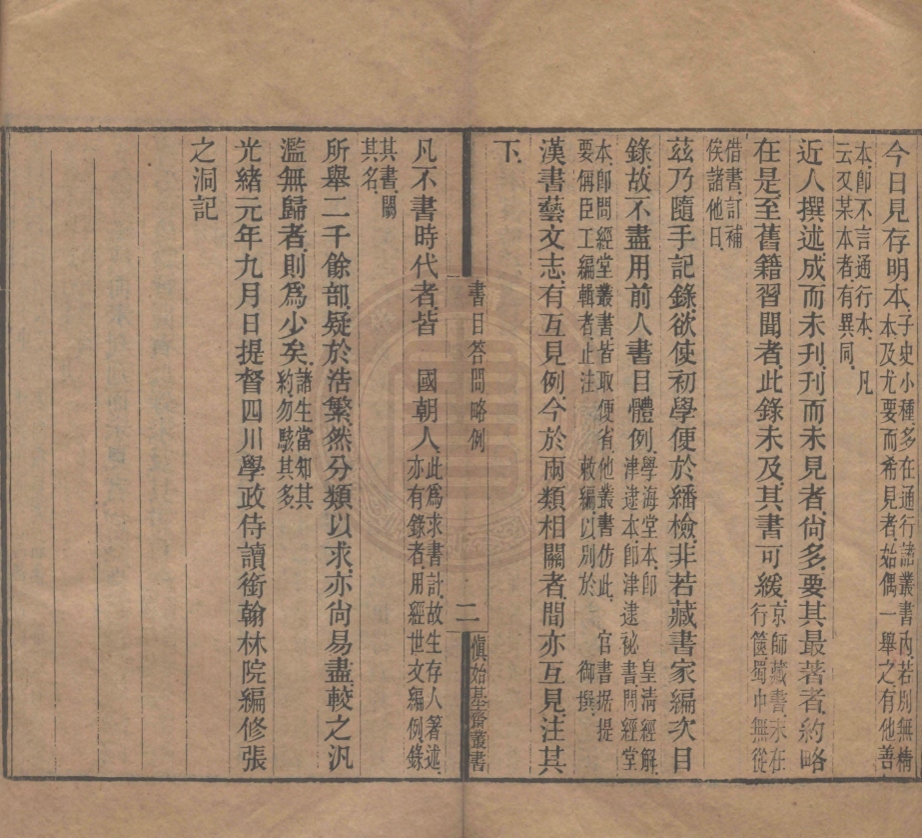 今日見存明本子史小種多在通行諸叢書內若別無精
本及尤要而希見者始偶一舉之有他善
本即不言通行本 凡
云又某本者有異同
近人撰述成而未刊刊而未見者尚多要其最著者約略
在是至舊籍習聞者此錄未及其書可緩京師藏書未在
行篋蜀中無從
借書訂補
俟諸他日
茲乃隨手記錄欲使初學便於繙檢非若藏書家編次目
錄故不盡用前人書目體例學海堂本即 皇清經解
津逮本即津逮祕書問經堂
本即問經堂叢書皆取便省他叢書仿此 官書据提
要偁臣工編輯者止注 敕編以別於 御撰
漢書藝文志有互見例今於兩類相關者間亦互見注其
下
書目答問略例
二
愼始基齋叢書
凡不書時代者皆 國朝人此爲求書計故生存人著述
亦有錄者用經世文編例錄
其書闕
其名
所舉二千餘部疑於浩繁然分類以求亦尚易盡較之汎
濫無歸者則爲少矣諸生當知其
約勿駭其多
光緒元年九月日提督四川學政侍讀銜翰林院編修張
之洞記